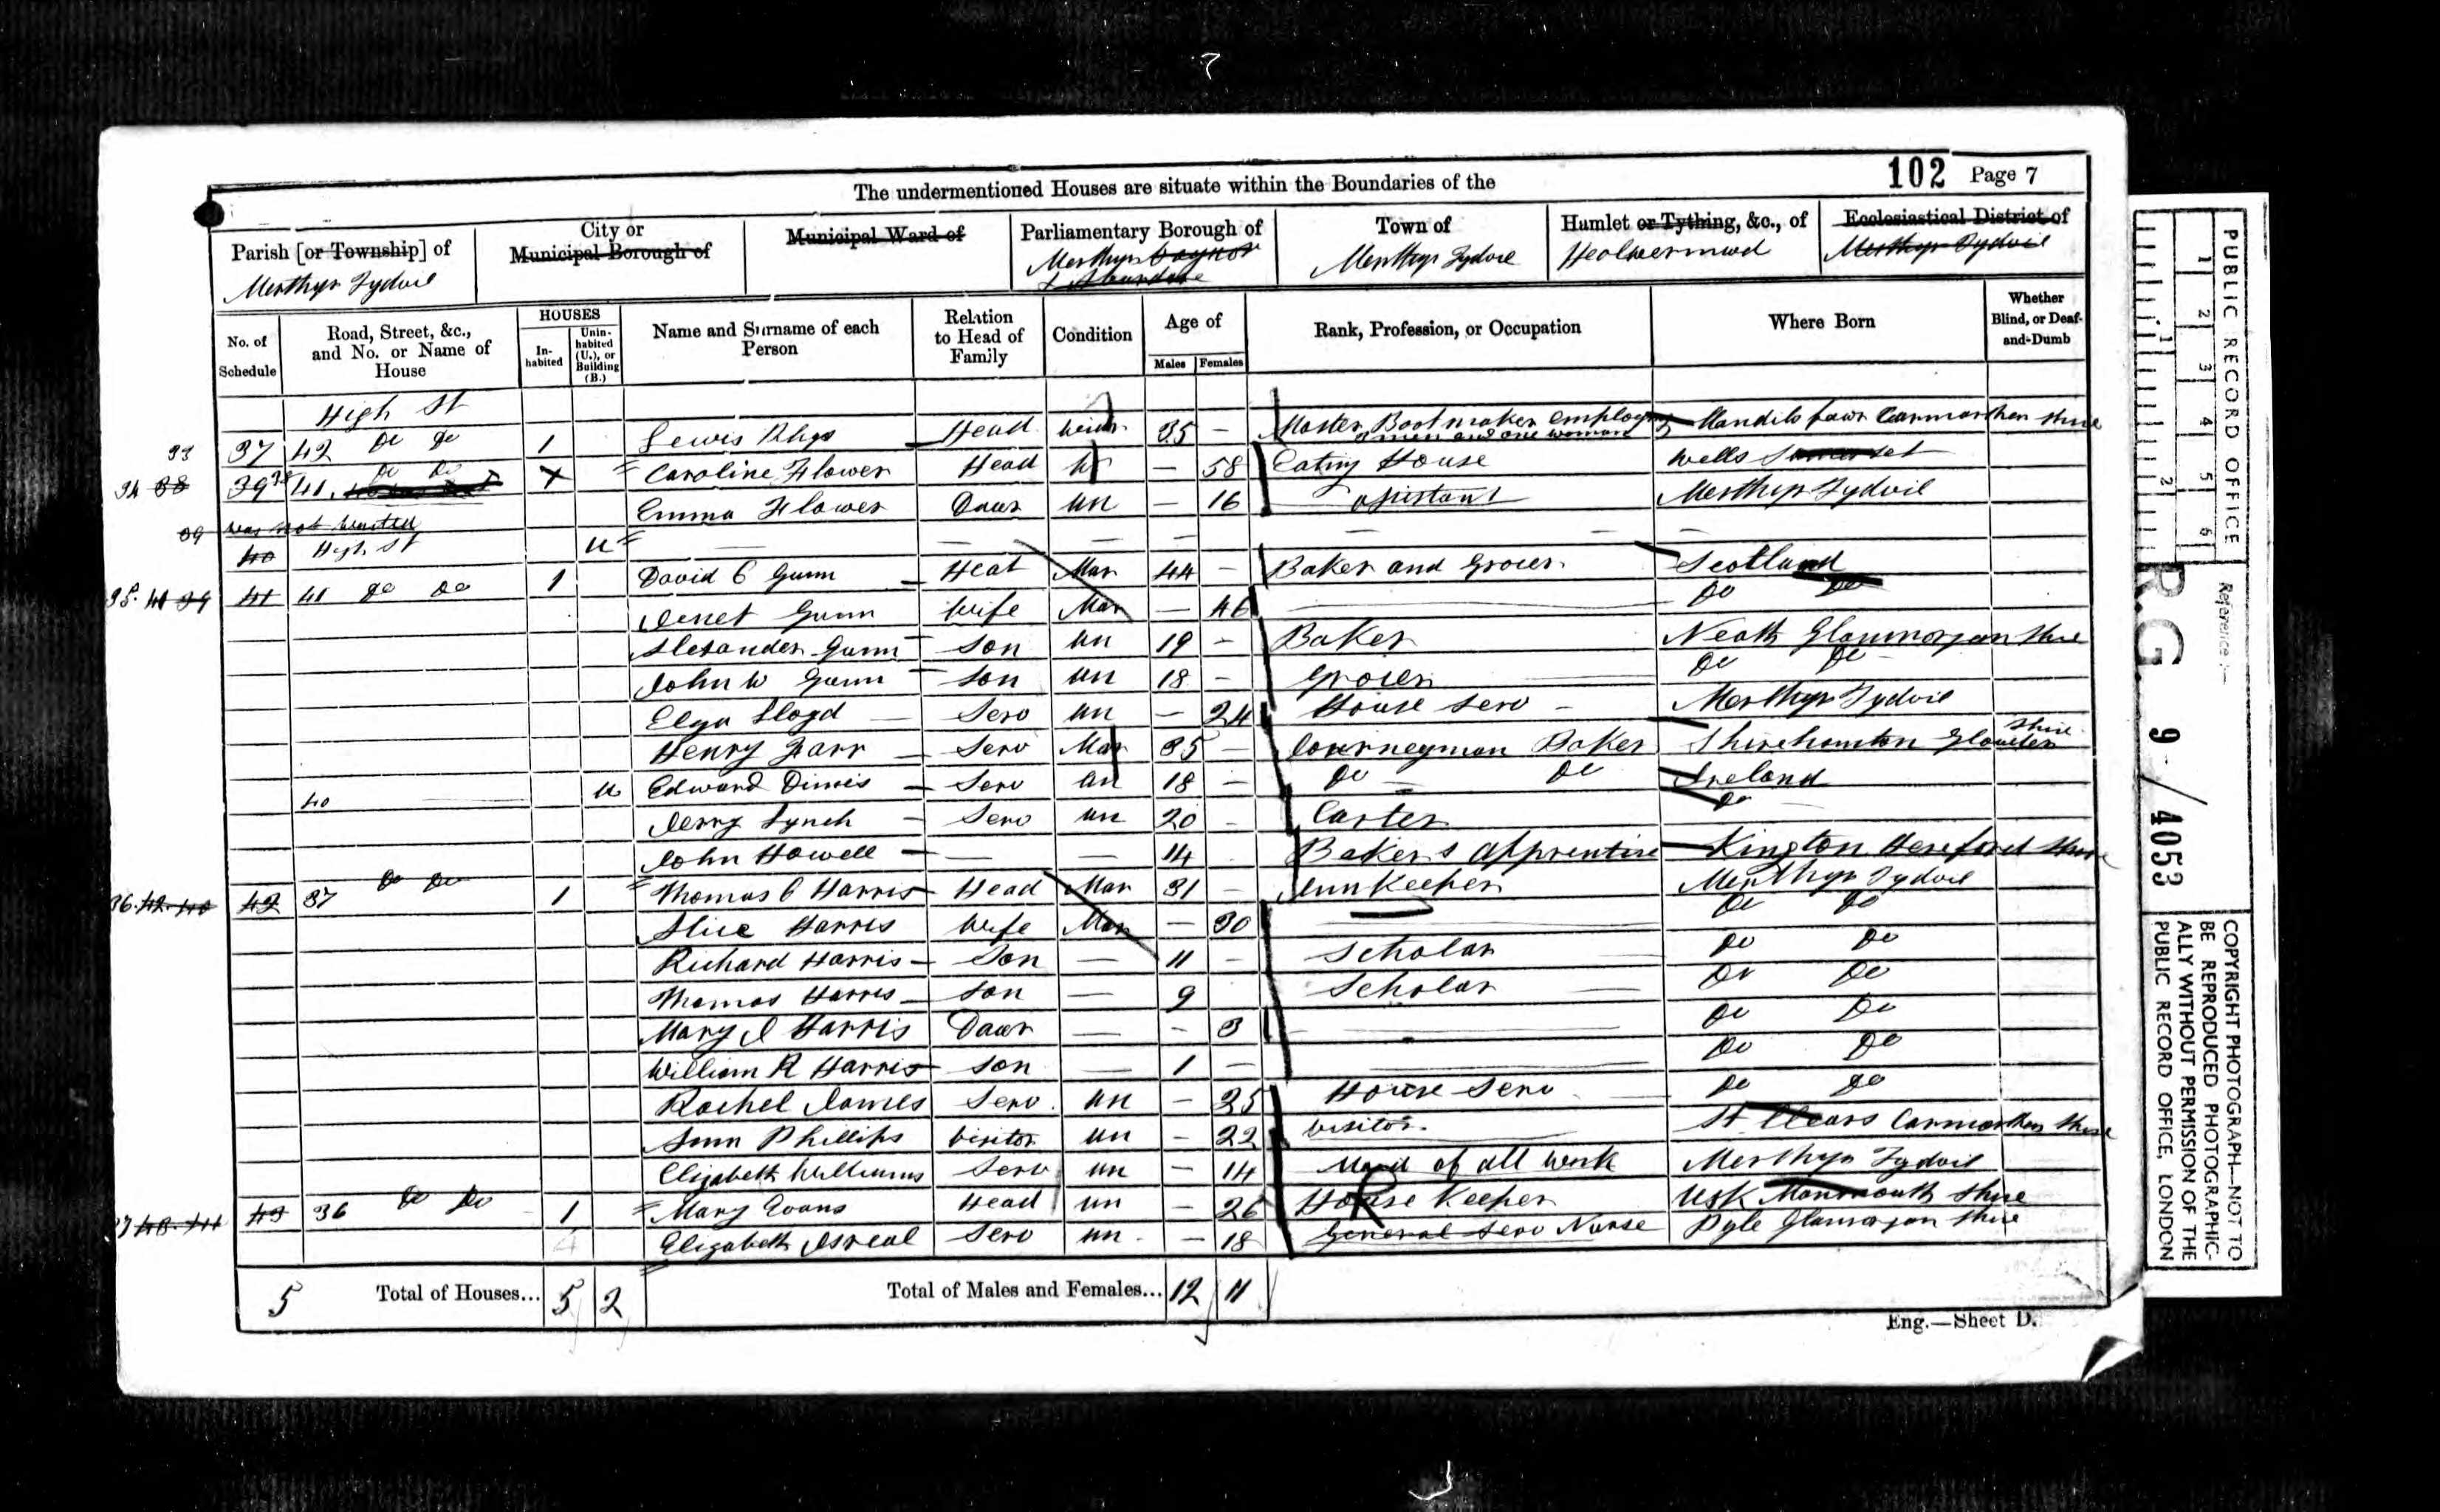 102 Page 7
The undermentioned Houses are situate within the Boundaries of the
Parish [or Township] of
City or Municipal Borough of
Municipal Ward of
Parliamentary Borough of
Town of
Hamlet or Tything, &c., of
Ecclesiastical District of
Merthyr Tydvil
Merthyr
Merthyr Tydvil
Merthyr Tydvil
No. of Schedule
Road, Street, &c., and No. or Name of House
HOUSES
In-habited
Unin-habited (U.), or Building (B.)
Name and Surname of each Person
Relation to Head of Family
Condition
Age of
Males Females
Rank, Profession, or Occupation
Where Born
Whether Blind, or Deaf-and-Dumb
High St
37 42 Do Do 1 Lewis Rhys Head 35 – Master Bootmaker employing Carmarthen Shire
men and one woman
39 41 Do Do Caroline Flower Head W – 58 Eating House Wells Somerset
Emma Flower Daur Un – 16 Assistant Merthyr Tydvil
was not wanted
40 High St U
35 41 39 41 41 Do Do 1 David C Gunn Head Mar 44 – Baker and Grocer Scotland
Jenet Gunn Wife Mar – 46 Do Do
Alexander Gunn Son Un 19 – Baker Neath Glamorgan Shire
John W Gunn Son Un 18 – Grocer Do Do
Eliza Lloyd Serv Un – 24 House Serv Merthyr Tydvil
Henry Serv Mar 35 – Journeyman Baker Shire
40 U Edward Serv Un 18 – Do Do Ireland
Jerry Lynch Serv Un 20 – Carter Do
John Howell – – 14 Bakers Apprentice Kington Hereford Shire
36 42 40 42 37 Do Do 1 Thomas C Harris Head Mar 31 – Inn Keeper Merthyr Tydvil
Alice Harris Wife Mar – 30 Do Do
Richard Harris Son – 11 – Scholar Do Do
Thomas Harris Son – 9 Scholar Do Do
Mary J Harris Daur – – 3 Do Do
William R Harris Son – 1 – Do Do
Rachel James Serv Un – 25 House Serv Do Do
Ann Phillips Visitor Un – 22 Visitor St Clears Carmarthen Shire
Elizabeth Williams Serv Un – 14 Maid of all work Merthyr Tydvil
43 36 Do Do 1 Mary Evans Head Un – 26 House Keeper Usk Monmouth Shire
Elizabeth Isreal Serv Un – 18 General Serv Nurse Pyle Glamorgan Shire
5 Total of Houses... 5 2 Total of Males and Females... 12 11
Eng.—Sheet D.
PUBLIC RECORD OFFICE
1 2 3 4 5 6
1 2
Reference :—
R.G. 9 / 4053
COPYRIGHT PHOTOGRAPH—NOT TO
BE REPRODUCED PHOTOGRAPHIC-
ALLY WITHOUT PERMISSION OF THE
PUBLIC RECORD OFFICE, LONDON